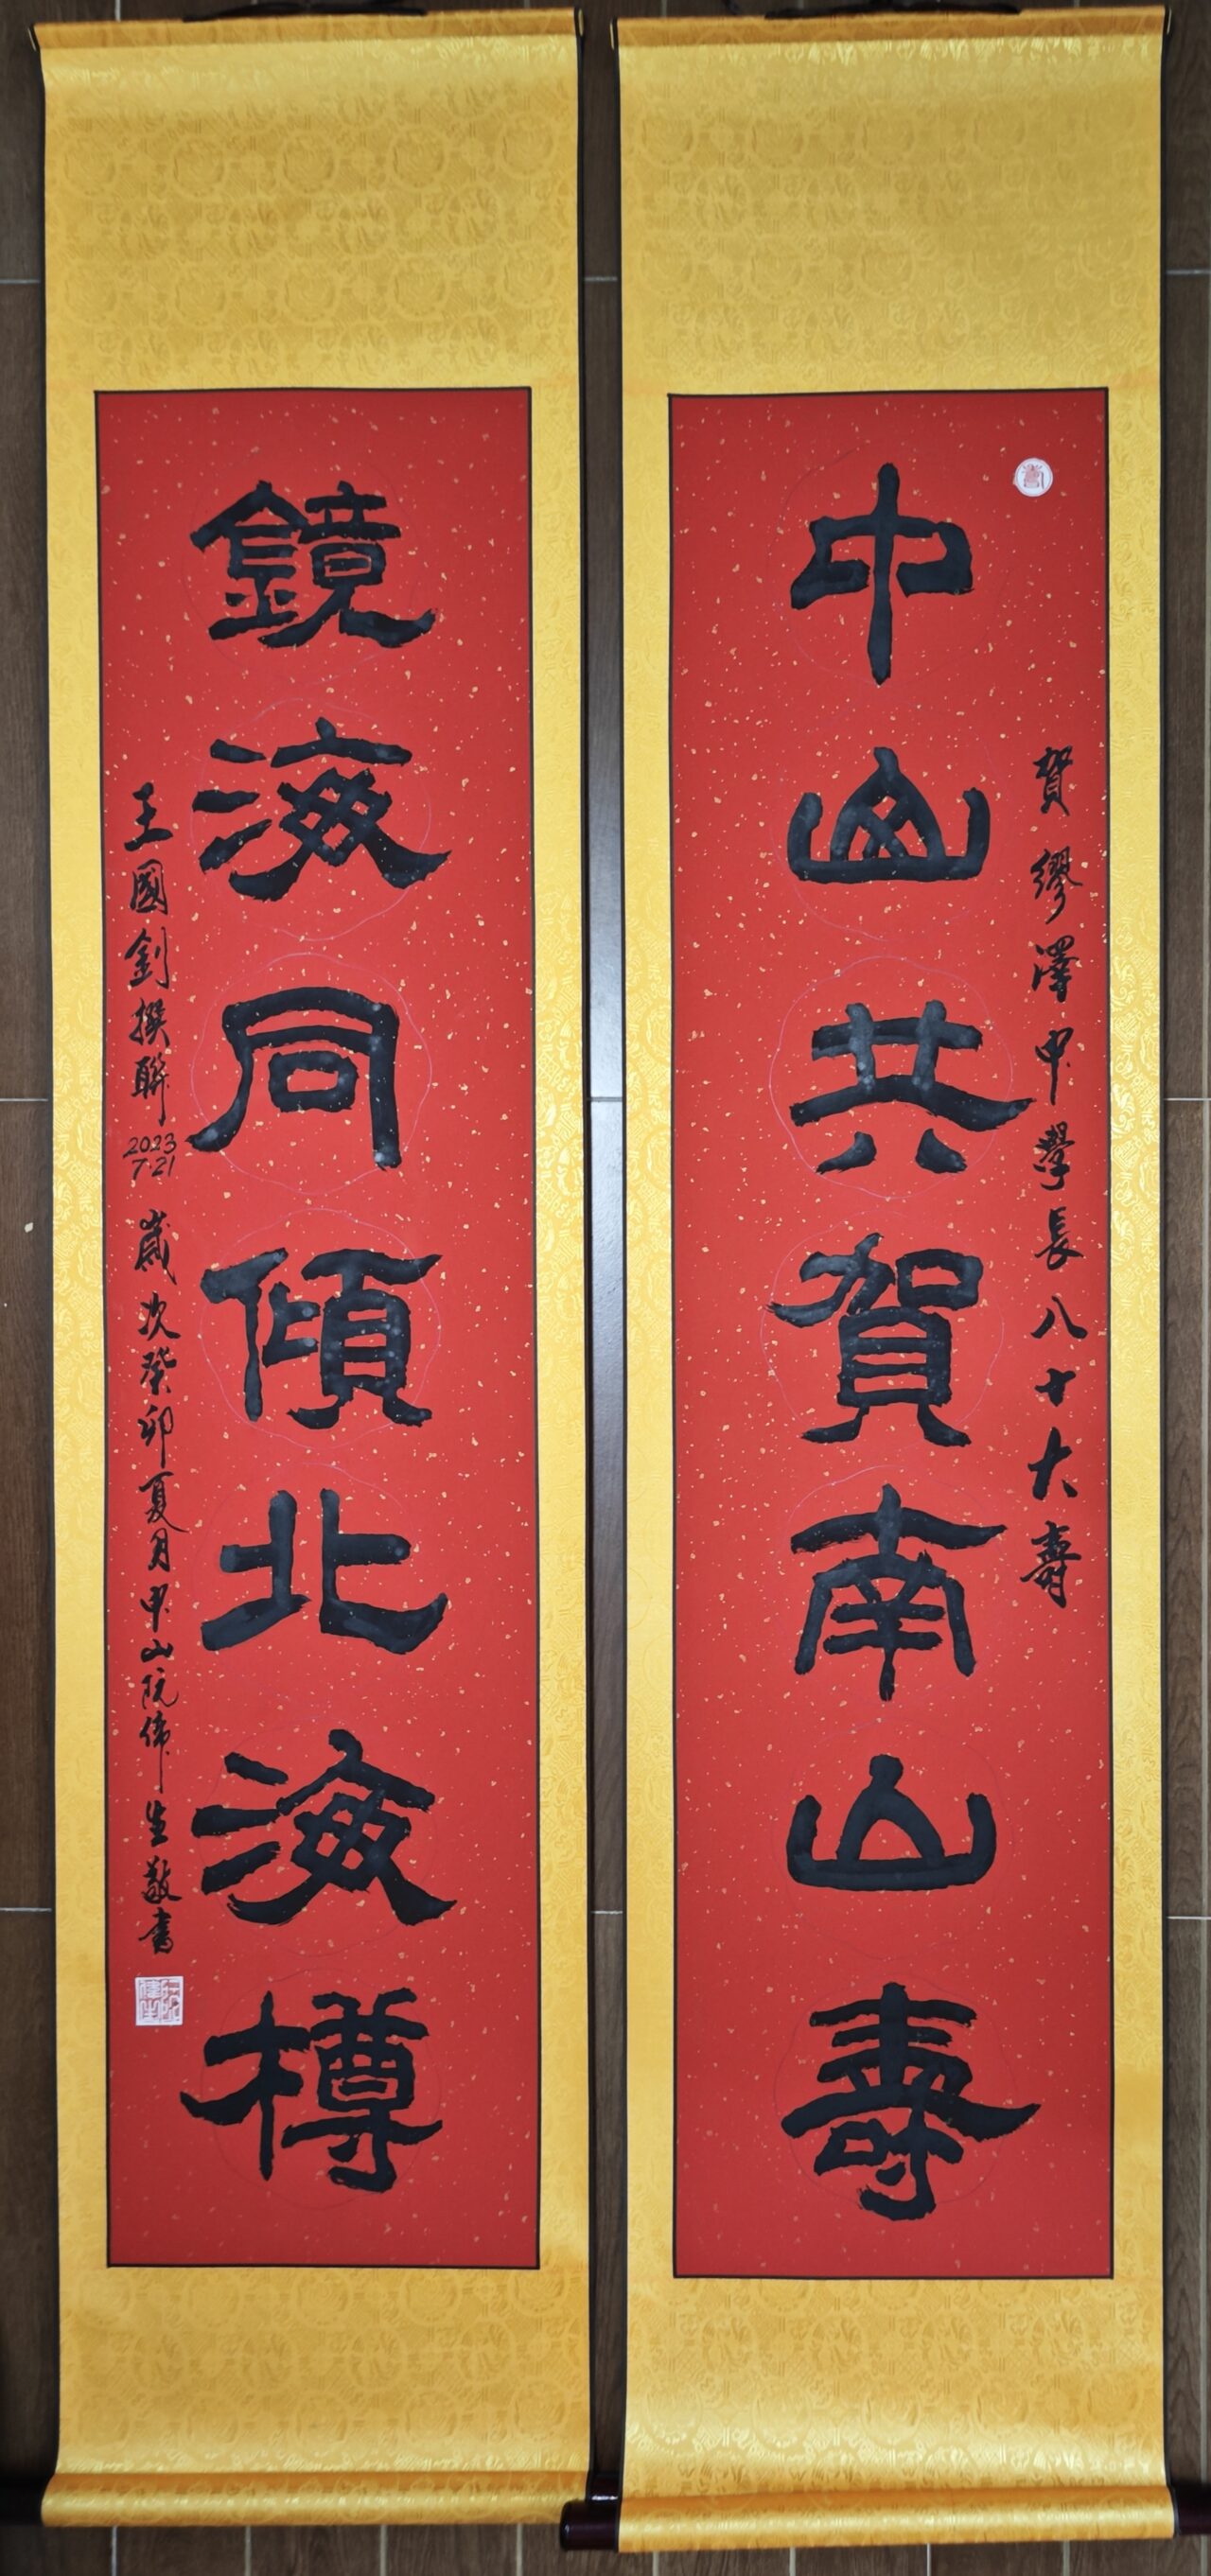 賀繆澤中學長八十大壽
中山共賀南山壽
鏡海同傾北海樽
王國釗撰聯
2023
7.21
歲次癸卯夏月中山阮偉生敬書